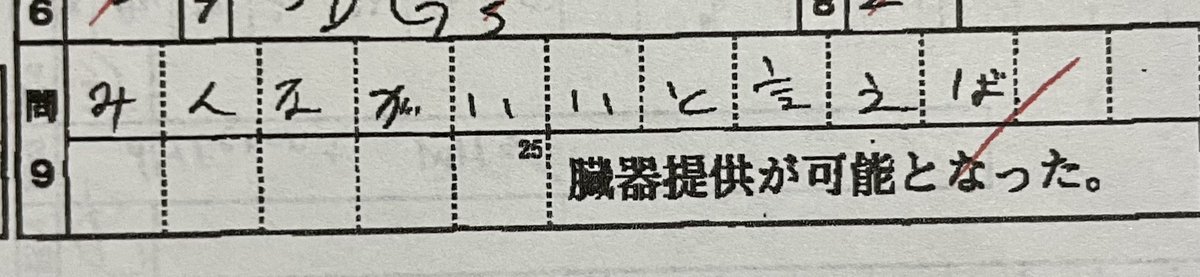 6 7 8
問9 みんながいいと言えば
25 臓器提供が可能となった。